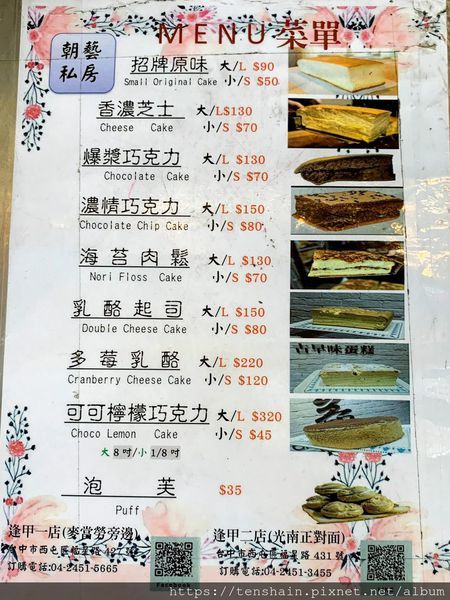 MENU菜單
朝藝
私房
招牌原味 大/L $90
Small Original Cake 小/S $50
香濃芝士 大/L$130
Cheese Cake 小/S $70
爆漿巧克力 大/L $130
Chocolate Cake 小/S $70
濃情巧克力 大/L $150
Chocolate Chip Cake 小/S $80
海苔肉鬆 大/L $130
Nori Floss Cake 小/S $70
乳酪起司 大/L $150
Double Cheese Cake 小/S $80
古早味蛋糕
多莓乳酪 大/L $220
Cranberry Cheese Cake 小/S $120
可可檸檬巧克力 大/L $320
Choco Lemon Cake 小/S $45
大8吋/小1/8吋
泡芙 $35
Puff
逢甲一店(麥當勞旁邊)
台中市西屯區福星路427
訂購電話:04-2451-5665
Facebook
逢甲二店(光南正對面)
台中市西屯區福星路 431 號
訂購電話:04-2451-3455
https://tenshain.pixnet.net/album